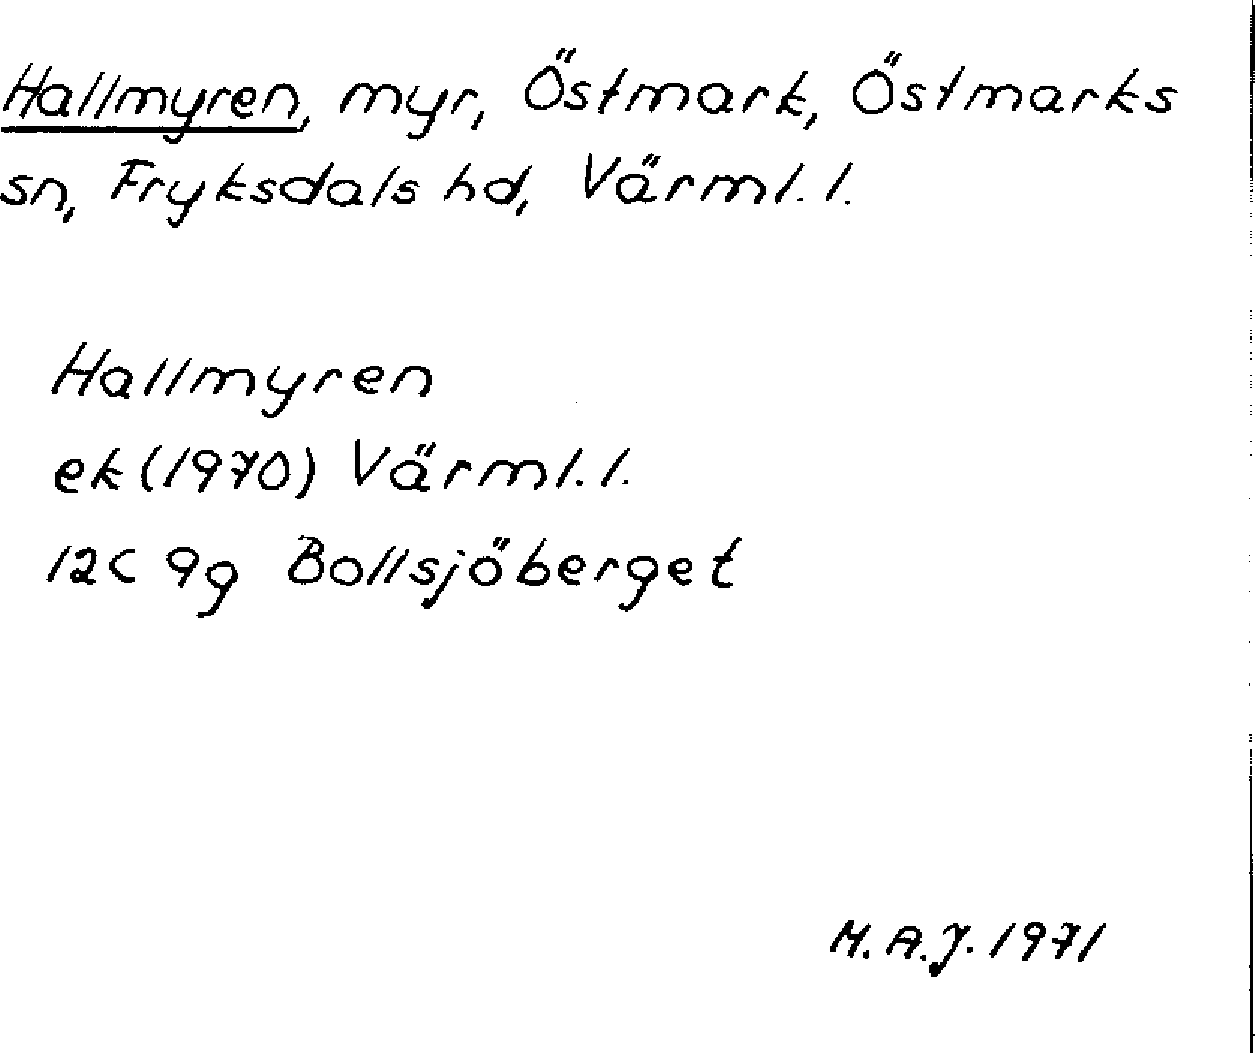 Hallmyren, myr, Östmark, Östmarks
sn, Fryksdals hd, Värml. l.
Hallmyren
ek (1970) Värml. l.
12C 9g Bollsjöberget
M.A.J. 1971